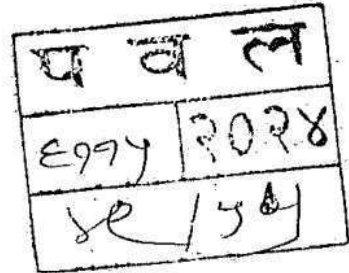 प व ल
६११५ २०२४
४९/५५